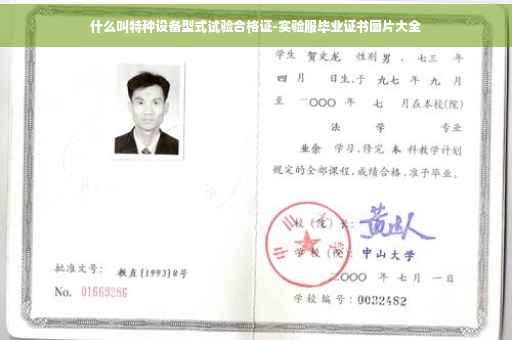 什么叫特种设备型式试验合格证-实验服毕业证书图片大全
学生 贺文龙 性别 男 ,七三 年
四 月 日生,于 九七 年 九 月
至 二〇〇〇 年 七 月在本校(院)
法 学 专业
业余 学习,修完 本 科教学计划
规定的全部课程,成绩合格,准予毕业。
校(院)长:
学校(院): 中山大学
二〇〇〇 年 七 月 一 日
学校编号:0032482
批准文号: 教直[1993]8号
No. 01669286